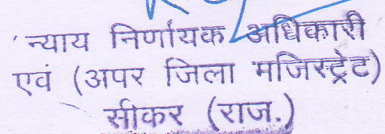 न्याय निर्णायक अधिकारी
एवं (अपर जिला मजिस्ट्रेट)
सीकर (राज.)